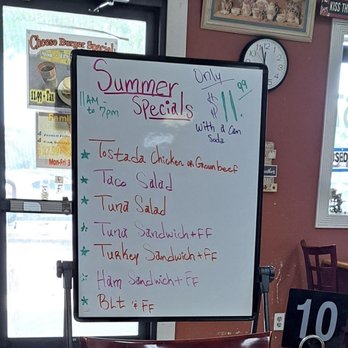 Cheese Burger Special
KISS THE
Summer
Specials
11AM -
to 7pm
Only
$11.99
with a can
Soda
Tostada Chicken or Ground beef
Taco Salad
Tuna Salad
Tuna Sandwich + FF
Turkey Sandwich + FF
Ham Sandwich + FF
Blt & FF
10